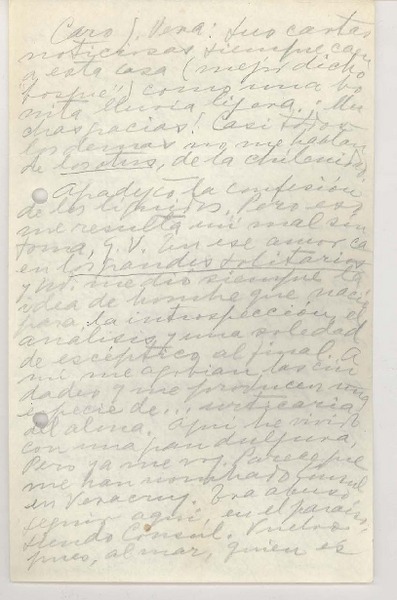 Caro J. Vera: Sus cartas
noticiosas siempre caen
a esta casa (mejor dicho
"bosque") como una bo
nita lluvia ligera. ¡Mu
chas gracias! Casi todos
los demás no me hablan
de los otros, de la chilenidad.
Apadyco la confesión
de los líquidos. Pero eso
me resulta un mal sín
toma, J. V. En ese amor ca
en los grandes solitarios
y Ud. me dió siempre la
idea de hombre que nació
para la introspección, el
análisis y una soledad
de escéptico al final. A
mí me agobian las ciu
dades y me producen una
especie de... urticaria
del alma. Aquí he vivido
con una gran dulzura.
Pero ya me voy. Parece que
me han nombrado Cónsul
en Veracruz. Era abuso
seguir aquí, en el paraíso,
siendo Cónsul. Vuelvo
pues, al mar, quien es